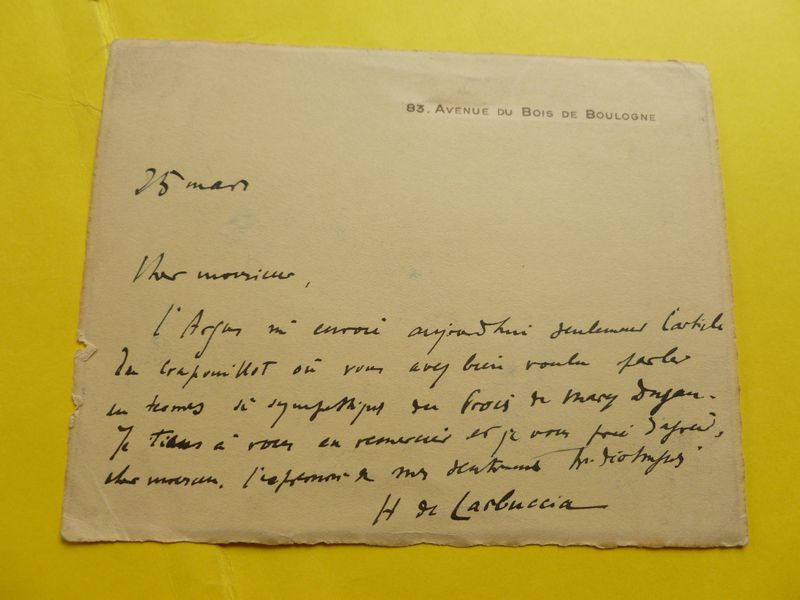 83. AVENUE DU BOIS DE BOULOGNE
25 mars
Cher monsieur,
l'Argus m'envoie aujourd'hui seulement l'article
du Crapouillot où vous avez bien voulu parler
en termes si sympathiques du Procès de Mary Dugan.
Je tiens à vous en remercier et je vous prie d'agréer,
cher monsieur, l'expression de mes sentiments très distingués
H de Carbuccia